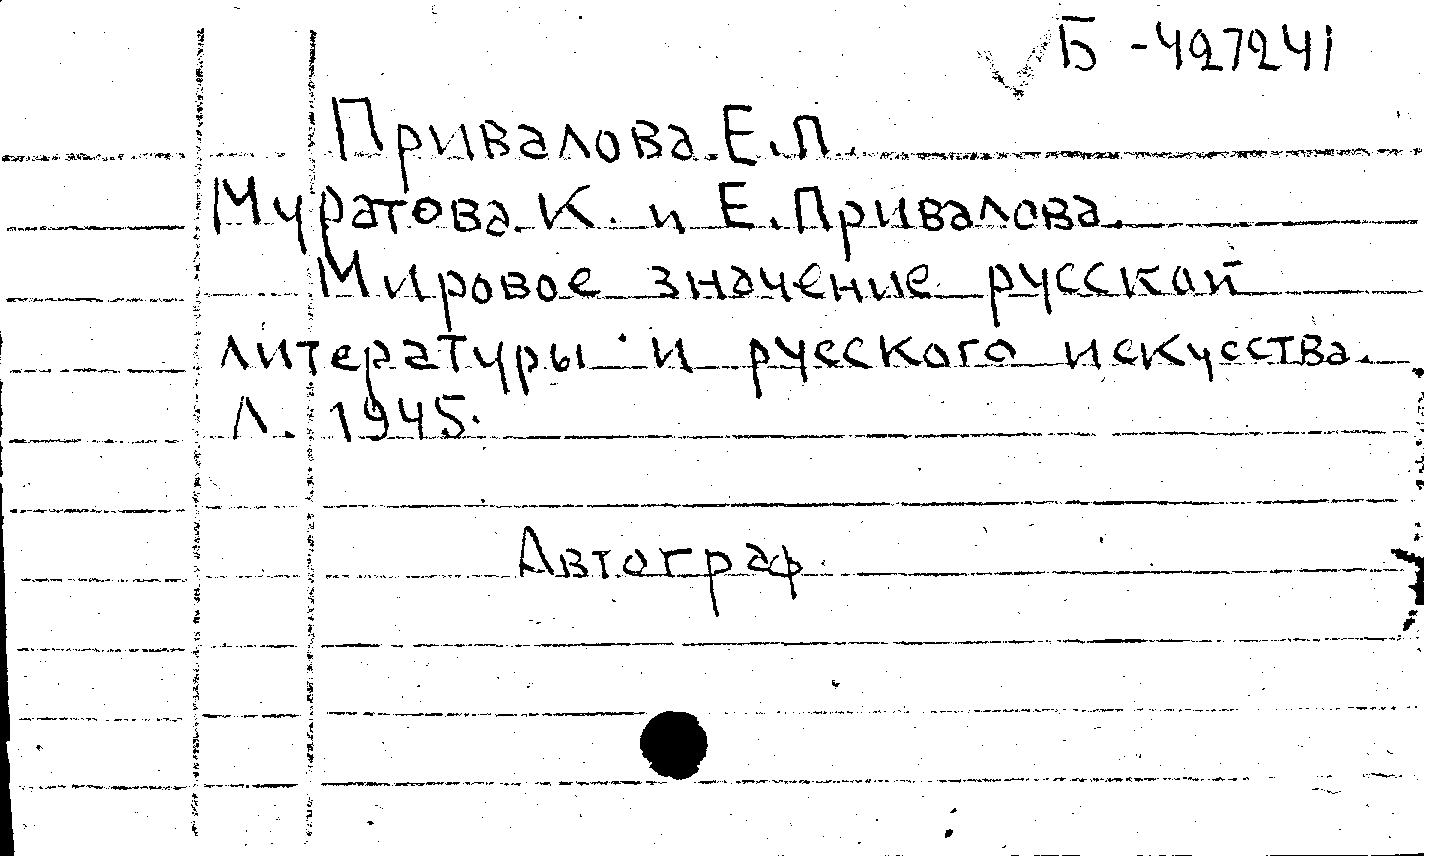 Б-427241
Привалова Е.П.
Муратова К. и Е. Привалова.
Мировое значение русской
литературы и русского искусства.
Л. 1945.
Автограф